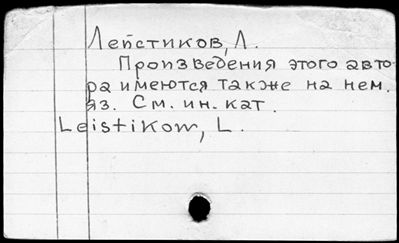 Лейстиков, Л.
Произведения этого авто-
ра имеются также на нем.
яз. См. ин. кат.
Leistikow, L.